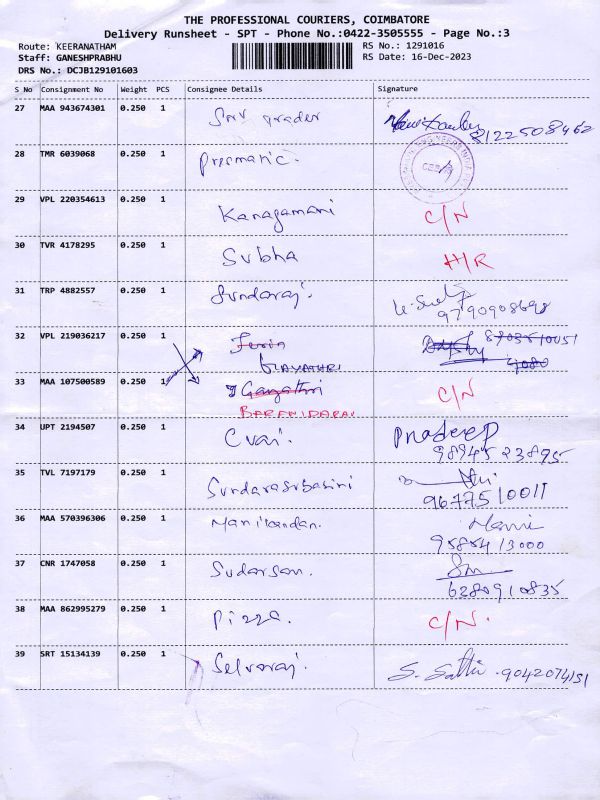 THE PROFESSIONAL COURIERS, COIMBATORE
Delivery Runsheet - SPT - Phone No.:0422-3505555 - Page No.:3
Route: KEERANATHAM RS No.: 1291016
Staff: GANESHPRABHU RS Date: 16-Dec-2023
DRS No.: DCJB129101603
S No Consignment No Weight PCS Consignee Details Signature
27 MAA 943674301 0.250 1 8122508462
28 TMR 6039068 0.250 1 Prismatic.
29 VPL 220354613 0.250 1 Kanagamani C/N
30 TVR 4178295 0.250 1 Subha H/R
31 TRP 4882557 0.250 1 Sundaraj. 9790908698
32 VPL 219036217 0.250 1
GAYATHRI
33 MAA 107500589 0.250 1 Gayathri C/N
34 UPT 2194507 0.250 1 Cvai. Pradeep
98945 23895
35 TVL 7197179 0.250 1 Sundarasubasini
9677510011
36 MAA 570396306 0.250 1 Manikandan. Mani
9585413000
37 CNR 1747058 0.250 1 Sudarsan. Sm
6280910835
38 MAA 862995279 0.250 1 Pizza. C/N.
39 SRT 15134139 0.250 1 Selvaraj. S. Sathi .9042074151